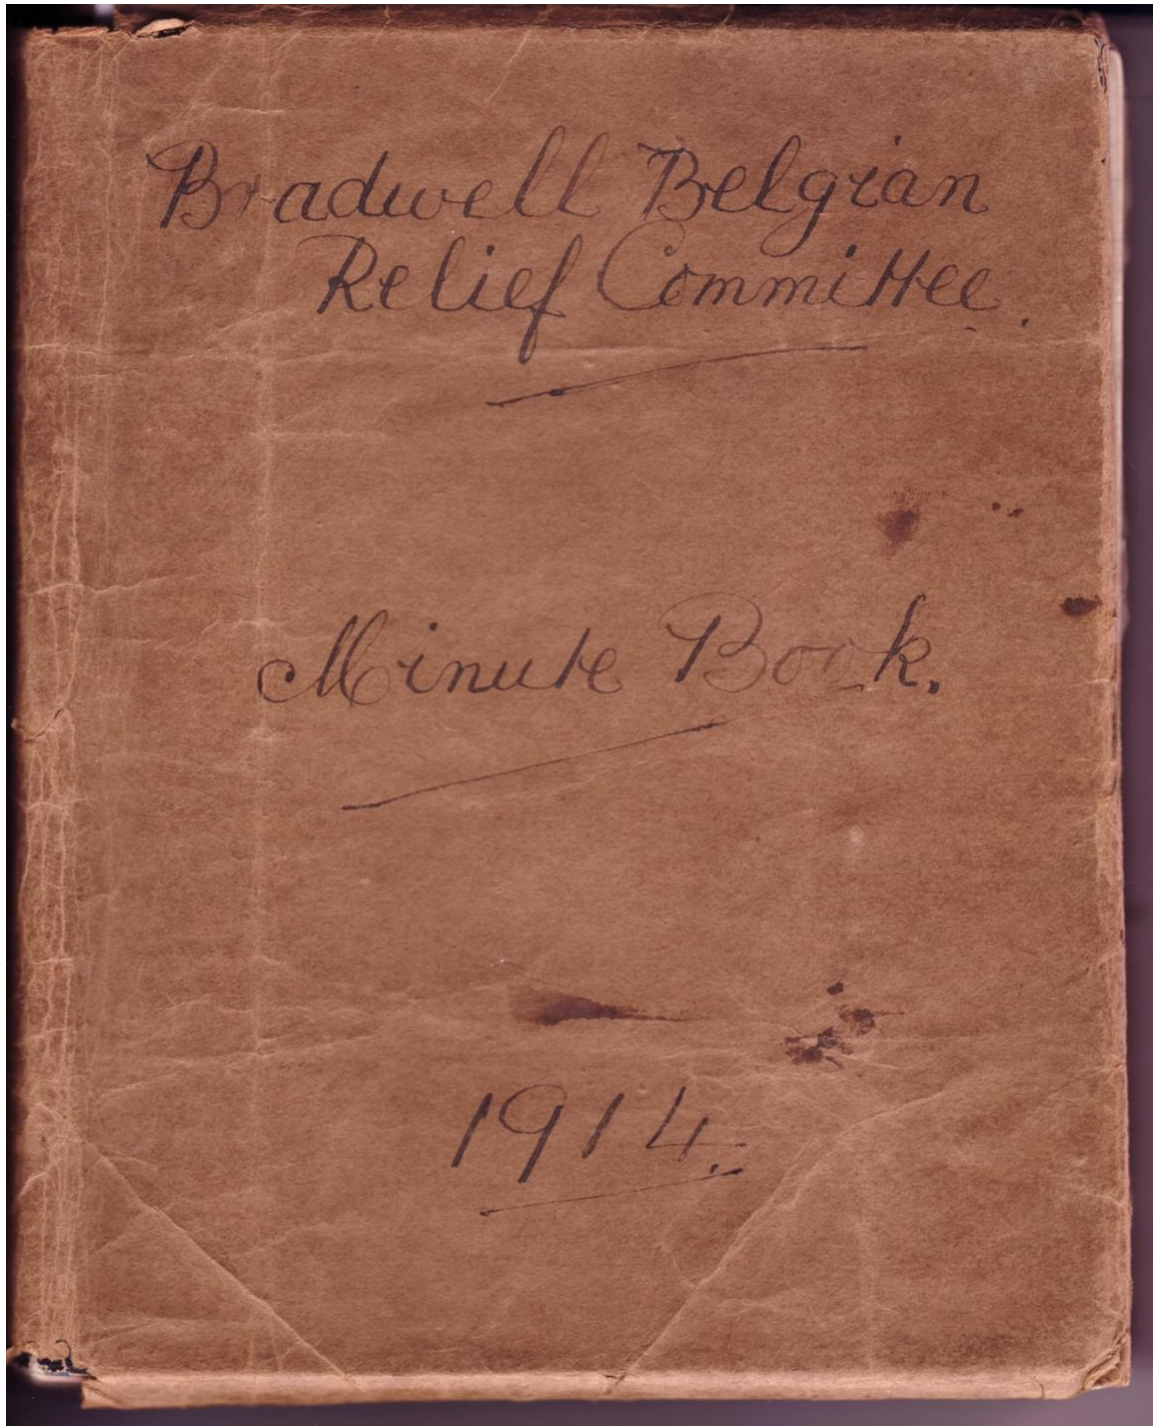 Bradwell Belgian
Relief Committee.
Minute Book.
1914.